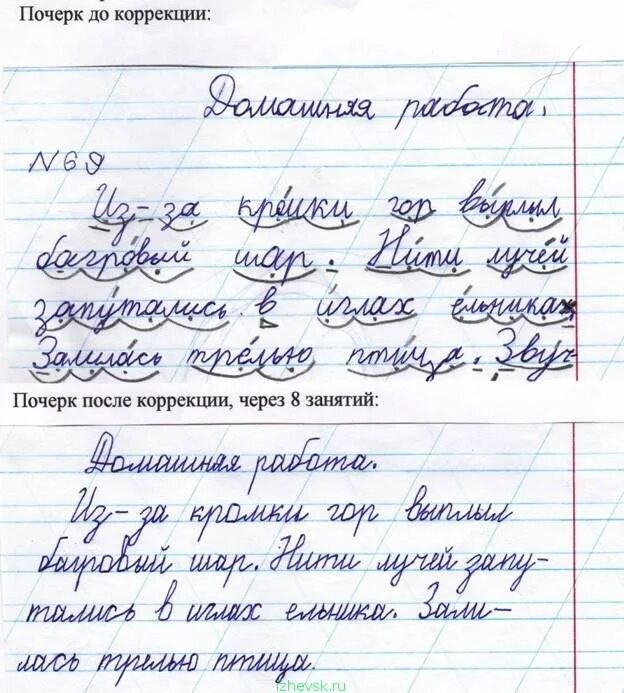 Почерк до коррекции:
Домашняя работа.
№69
Из-за кромки гор выплыл
багровый шар. Нити лучей
запутались в иглах ельника.
Залилась трелью птица. Звуч-
Почерк после коррекции, через 8 занятий:
Домашняя работа.
Из-за кромки гор выплыл
багровый шар. Нити лучей запу-
тались в иглах ельника. Зали-
лась трелью птица.
izhevsk.ru